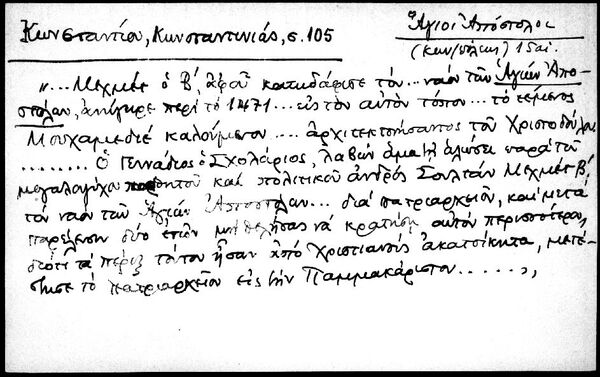 Κωνσταντίου, Κωνσταντινιάς, σ. 105
Ἅγιοι Ἀπόστολοι
(Κων/πόλεως) 15 αἰ.
"... Μεχμὲτ ὁ Β', ἀφοῦ κατεδάφισε τὸν... ναὸν τῶν Ἁγίων Ἀπο-
στόλων, ἀνήγειρε περὶ τὸ 1471... εἰς τὸν αὐτὸν τόπον... τὸ τέμενος
Μουχαμεδιὲ καλούμενον.... ἀρχιτεκτονήσαντος τοῦ Χριστοδούλου
........ Ὁ Γεννάδιος ὁ Σχολάριος, λαβὼν ἅμα τῇ ἁλώσει παρὰ τοῦ
μεγαλοψύχου καὶ πολιτικοῦ ἀνδρὸς Σουλτὰν Μεχμὲτ Β'
τὸν ναὸν τῶν Ἁγίων Ἀποστόλων... διὰ πατριαρχεῖον, καὶ μετὰ
παρέλευσιν δύο ἐτῶν μὴ θελήσας νὰ κρατήσῃ αὐτὸν περισσότερον,
διότι τὰ πέριξ τούτου ἦσαν ἀπὸ Χριστιανοὺς ἀκατοίκητα, μετέ-
στησε τὸ πατριαρχεῖον εἰς τὴν Παμμακάριστον......,,